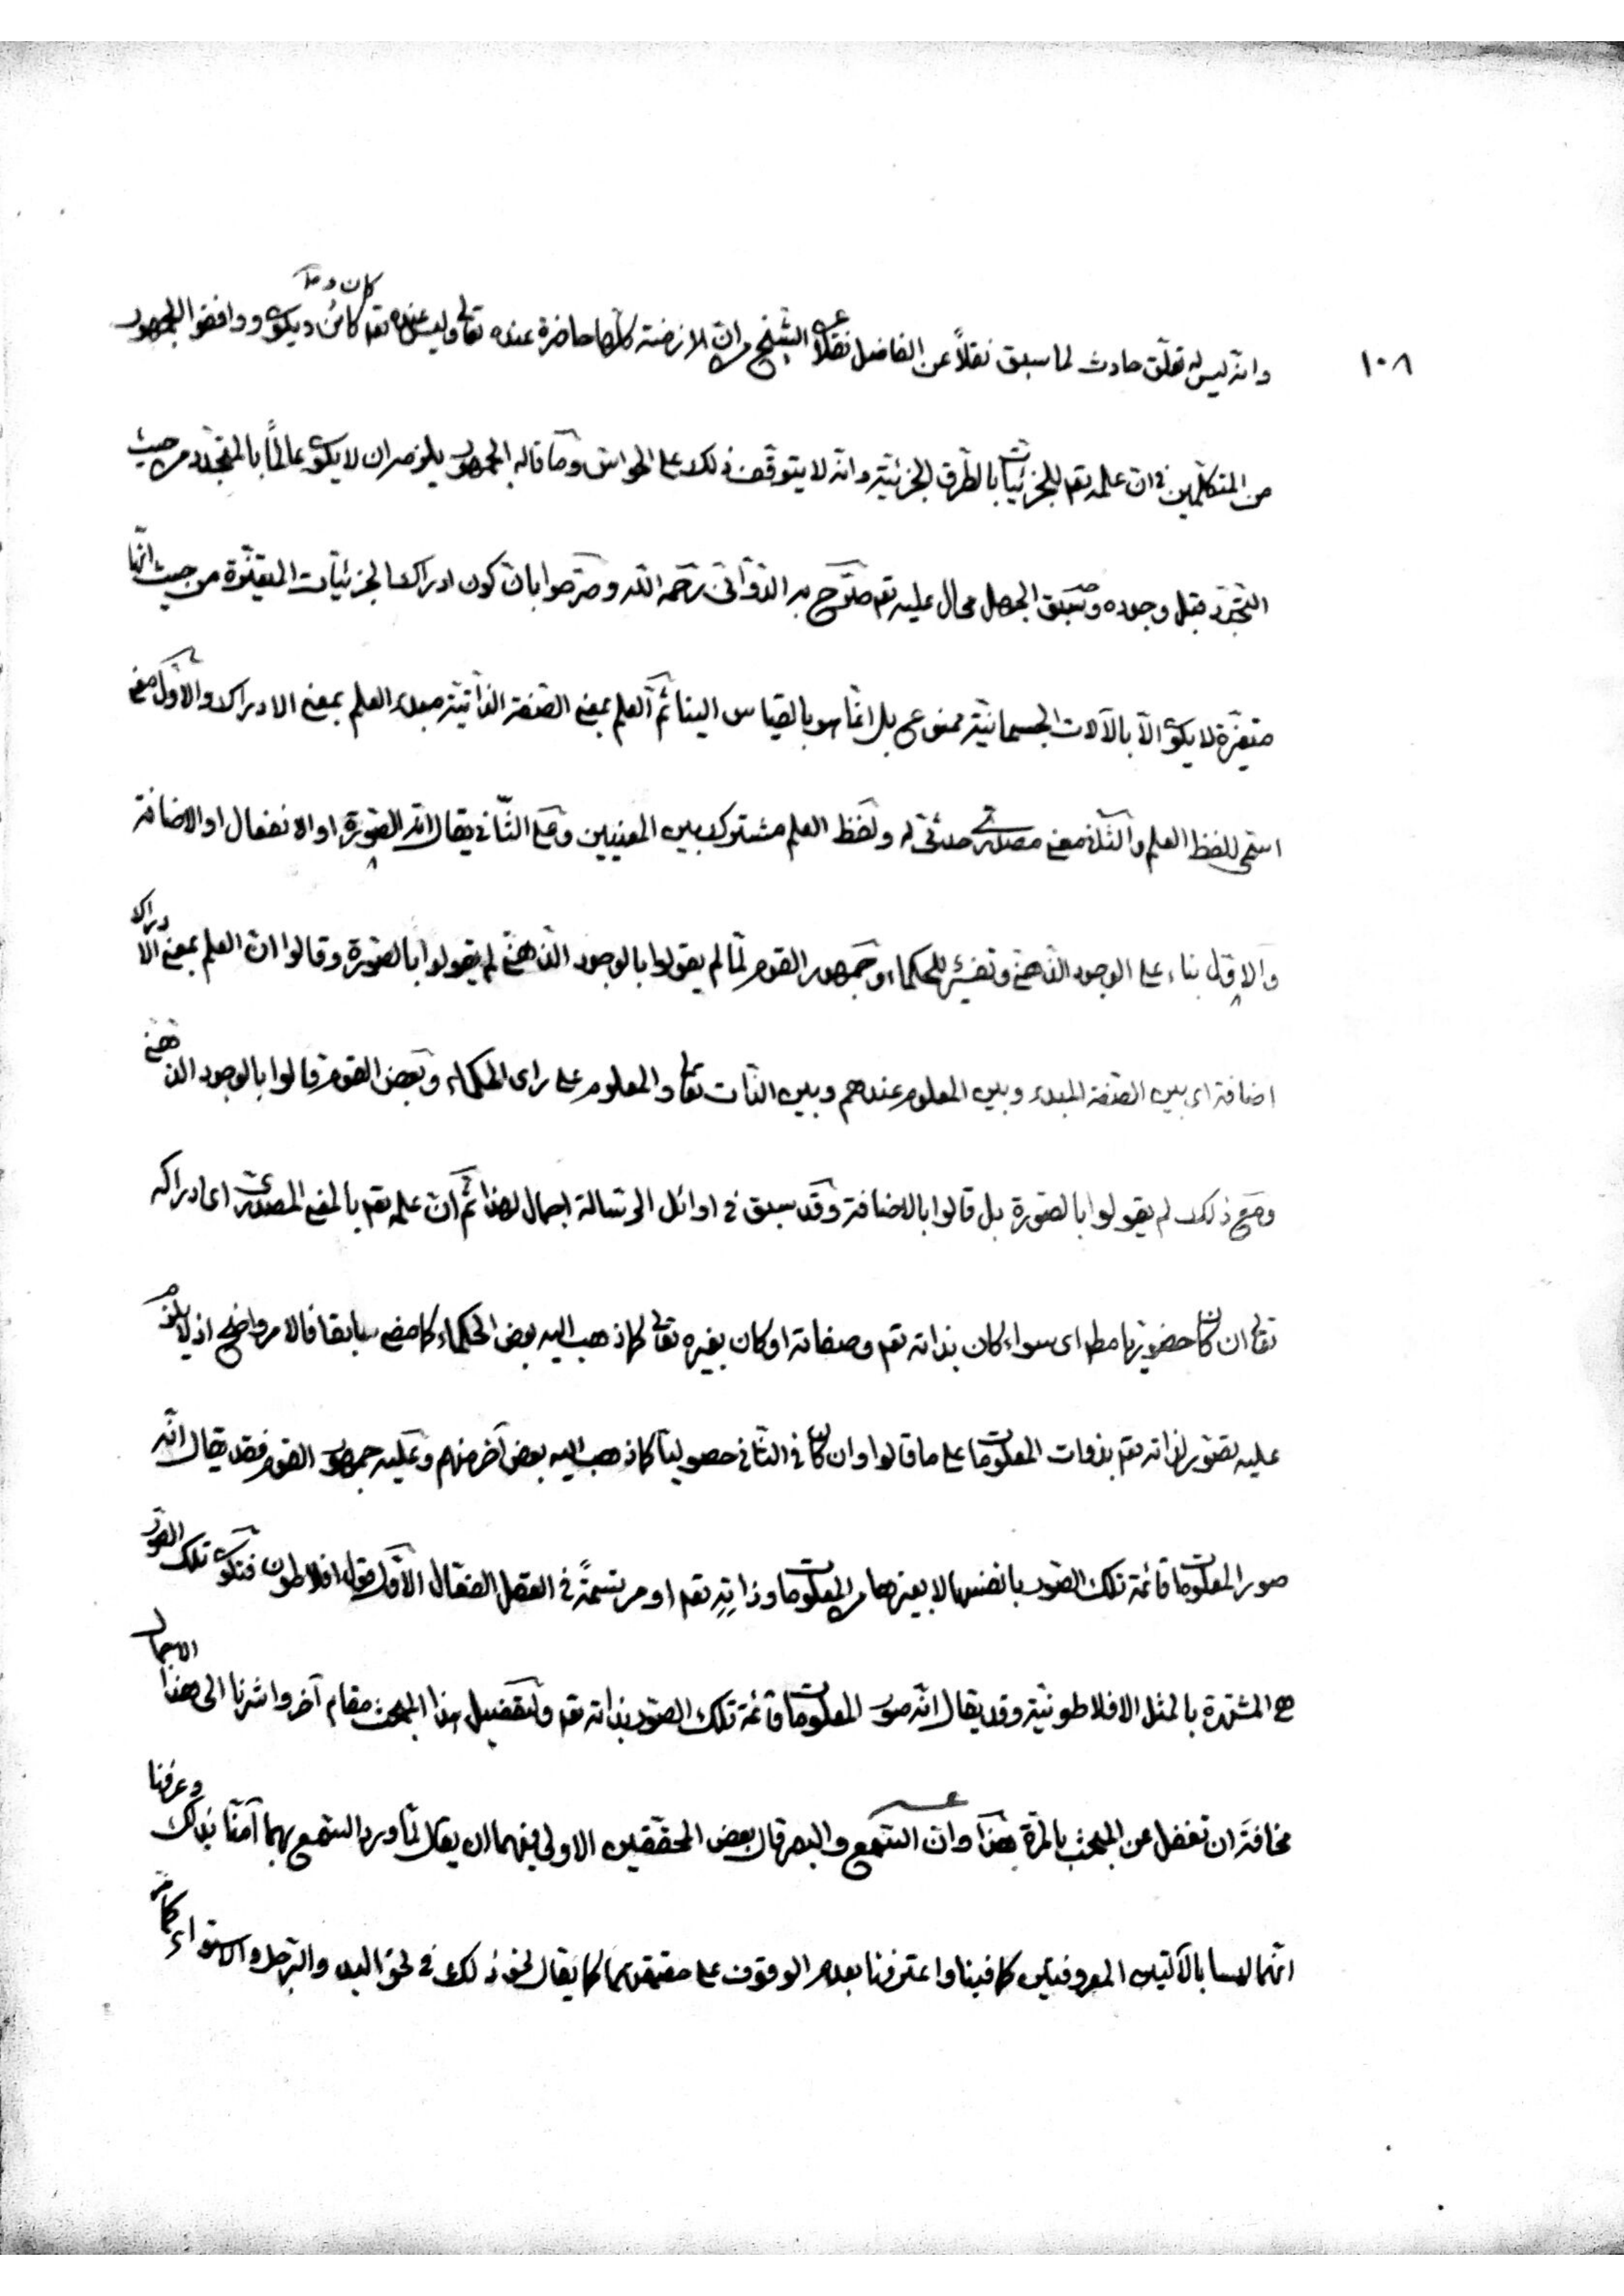 ١٠٨
وانه ليس له تعلّق حادث لما سبق نقلاً عن الفاضل نقلا عن الشيخ من انّ الازمنة كلّها حاضرة عنده تعالى وليس عنده تعم كان وكائن ويكون ووافقوا الجمهور
من المتكلّمين في انّ علمه تعم للجزئيات بالطرق الجزئيّة وانّه لا يتوقّف ذلك على الحواسّ وما قاله الجمهور يلزم ان لا يكون عالمًا بالمتجدّد من حيث
التجدّد قبل وجوده وسبق الجهل محال عليه تعم صرّح به الدّوّانيّ رحمه اللّه وصرّحوا بانّ كون ادراك الجزئيّات المتغيّرة من حيث انّها
متغيّرة لا يكون الّا بالآلات الجسمانيّة ممنوع بل انّما هو بالقياس الينا ثمّ العلم بمعنى الصّفة الذّاتيّة مبدء العلم بمعنى الادراك والاوّل معنى
اسمى للفظ العلم والثّاني معنى مصدرى حدثىّ له ولفظ العلم مشترك بين المعنيين وعلى الثّاني يقال انّه الصّورة او الانفعال او الاضافة
والاوّل بناء على الوجود الذّهنى وتفسير للحكماء وجمهور القوم لمّا لم يقولوا بالوجود الذّهنىّ لم يقولوا بالصّورة وقالوا انّ العلم بمعنى الادراك
اضافة اى بين الصّفة المبدء وبين المعلوم عندهم وبين الذّات تعالى والمعلوم على راى الحكماء وبعض القوم قالوا بالوجود الذهنى
ومع ذلك لم يقولوا بالصّورة بل قالوا بالاضافة وقد سبق في اوائل الرّسالة اجمال لهذا ثمّ انّ علمه تعم بالمعنى المصدرى اى ادراكه
تعالى ان كان حضوريّا مطا اى سواء كان بذاته تعم وصفاته او كان بغيره تعالى كما ذهب اليه بعض الحكماء كما مضى سابقا فالامر واضح اذ لا يلزم
عليه تصوّر لذاته تعم بذوات المعلومات على ما قالوا وان كان في الثّاني حصوليّا كما ذهب اليه بعض آخر منهم وعليه جمهور القوم فقد يقال انّه
صور المعلومات قائمة تلك الصّور بانفسها لا بغيرها من المعلومات وذاتِهِ تعم او مرتسمةً في العقل الفعّال الاوّل قول افلاطون فتكون تلك الصّور
هي المشتهرة بالمثل الافلاطونيّة وقد يقال انّه صور المعلومات قائمة تلك الصّور بذاته تعم ولتفصيل هذا المبحث مقام آخر واشرنا الى هذا الاجمال
مخافة ان تغفل عن المبحث بالمرّة هذا وانّ السّمع والبصر قال بعض المحقّقين الاولى فيهما ان يقال لمّا ورد السّمع بهما آمنّا بذلك وعرفنا
انّهما ليسا بالآلتين المعروفتين كما فينا واعترفنا بعدم الوقوف على حقيقتهما كما يقال نحو ذلك في نحو اليد والرّجل والاستواء كما مرّ